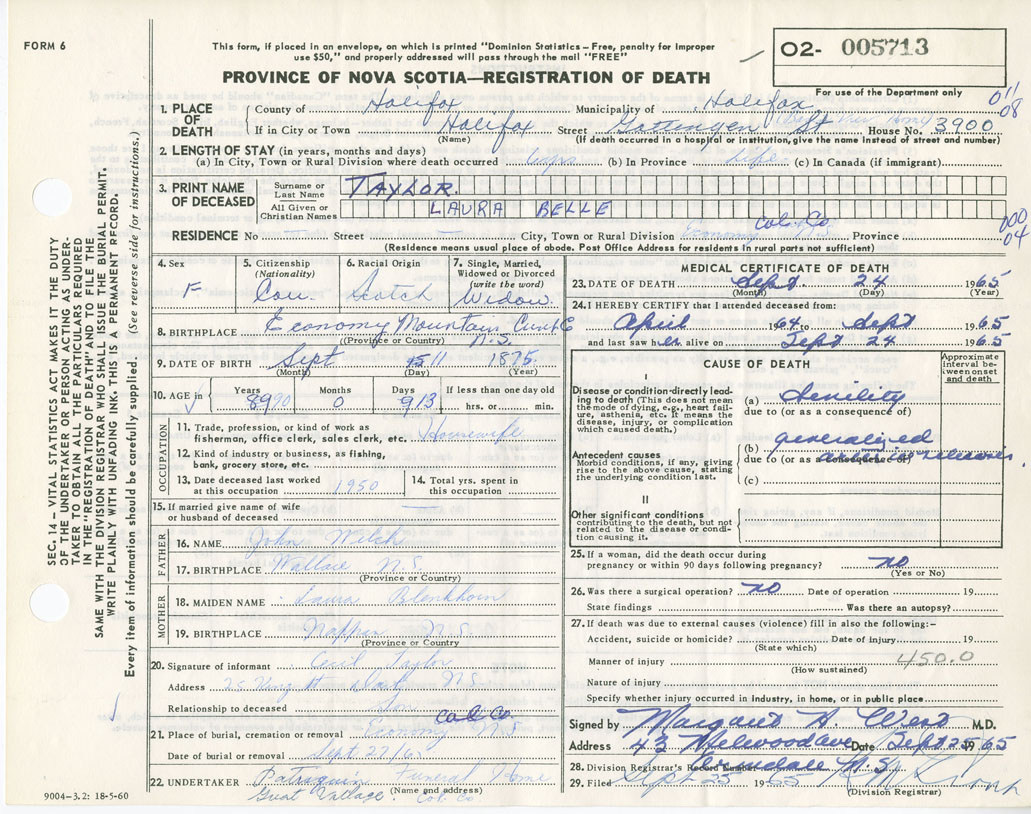 FORM 6
This form, if placed in an envelope, on which is printed "Dominion Statistics – Free, penalty for improper
use $50," and properly addressed will pass through the mail "FREE"
PROVINCE OF NOVA SCOTIA—REGISTRATION OF DEATH
02- 005713
For use of the Department only
011
08
1. PLACE OF DEATH
County of Halifax Municipality of Halifax
If in City or Town Halifax Street Gottingen St House No. 3900
(Name) (If death occurred in a hospital or institution, give the name instead of street and number)
2. LENGTH OF STAY (in years, months and days)
(a) In City, Town or Rural Division where death occurred (b) In Province Life (c) In Canada (if immigrant)
3. PRINT NAME OF DECEASED
Surname or Last Name TAYLOR.
All Given or Christian Names LAURA BELLE
RESIDENCE No Street City, Town or Rural Division Economy Col. Co. Province
000
04
(Residence means usual place of abode. Post Office Address for residents in rural parts not sufficient)
4. Sex
F
5. Citizenship
(Nationality)
Can
6. Racial Origin
Scotch
7. Single, Married,
Widowed or Divorced
(write the word)
Widow.
8. BIRTHPLACE Economy Mountain
(Province or Country) N.S.
9. DATE OF BIRTH Sept 11 1875
(Month) (Day) (Year)
10. AGE in
Years Months Days If less than one day old
89 90 0 9 13 hrs. or min.
OCCUPATION
11. Trade, profession, or kind of work as
fisherman, office clerk, sales clerk, etc. Housewife
12. Kind of industry or business, as fishing,
bank, grocery store, etc.
13. Date deceased last worked
at this occupation 1950
14. Total yrs. spent in
this occupation
15. If married give name of wife
or husband of deceased
FATHER
16. NAME John Welch
17. BIRTHPLACE Wallace N.S.
(Province or Country)
MOTHER
18. MAIDEN NAME Laura Blenkhorn
19. BIRTHPLACE Nappan N.S.
(Province or Country)
20. Signature of informant Cecil Taylor
Address 25 N.S.
Relationship to deceased son
21. Place of burial, cremation or removal Economy Col. Co. N.S
Date of burial or removal Sept 27/65
22. UNDERTAKER Funeral Home
(Name and address)
Great Village. Col. Co.
9004-3.2: 18-5-60
MEDICAL CERTIFICATE OF DEATH
23. DATE OF DEATH Sept. 24 1965
(Month) (Day) (Year)
24. I HEREBY CERTIFY that I attended deceased from:
April 1964 to Sept 1965
and last saw her alive on Sept 24 1965
CAUSE OF DEATH
Approximate interval between onset and death
I
Disease or condition directly leading to death (This does not mean the mode of dying, e.g., heart failure, asthenia, etc. It means the disease, injury, or complication which caused death.)
(a) Senility
due to (or as a consequence of)
Antecedent causes
Morbid conditions, if any, giving rise to the above cause, stating the underlying condition last.
(b) generalized
due to (or as a consequence of) arteriosclerosis.
(c)
II
Other significant conditions
contributing to the death, but not related to the disease or condition causing it.
25. If a woman, did the death occur during
pregnancy or within 90 days following pregnancy? no
(Yes or No)
26. Was there a surgical operation? no Date of operation 19
State findings Was there an autopsy?
27. If death was due to external causes (violence) fill in also the following:–
Accident, suicide or homicide? Date of injury 19
(State which)
Manner of injury 450.0
(How sustained)
Nature of injury
Specify whether injury occurred in industry, in home, or in public place
Signed by Margaret H. West M.D.
Address 43 Melwood Ave Date Sept 25 1965
28. Division Registrar's Record Number Armdale N.S.
29. Filed Sept 25 1965
(Division Registrar)
SEC. 14 – VITAL STATISTICS ACT MAKES IT THE DUTY
OF THE UNDERTAKER OR PERSON ACTING AS UNDER-
TAKER TO OBTAIN ALL THE PARTICULARS REQUIRED
IN THE "REGISTRATION OF DEATH" AND TO FILE THE
SAME WITH THE DIVISION REGISTRAR WHO SHALL ISSUE THE BURIAL PERMIT.
WRITE PLAINLY WITH UNFADING INK, THIS IS A PERMANENT RECORD.
Every item of information should be carefully supplied. (See reverse side for instructions.)